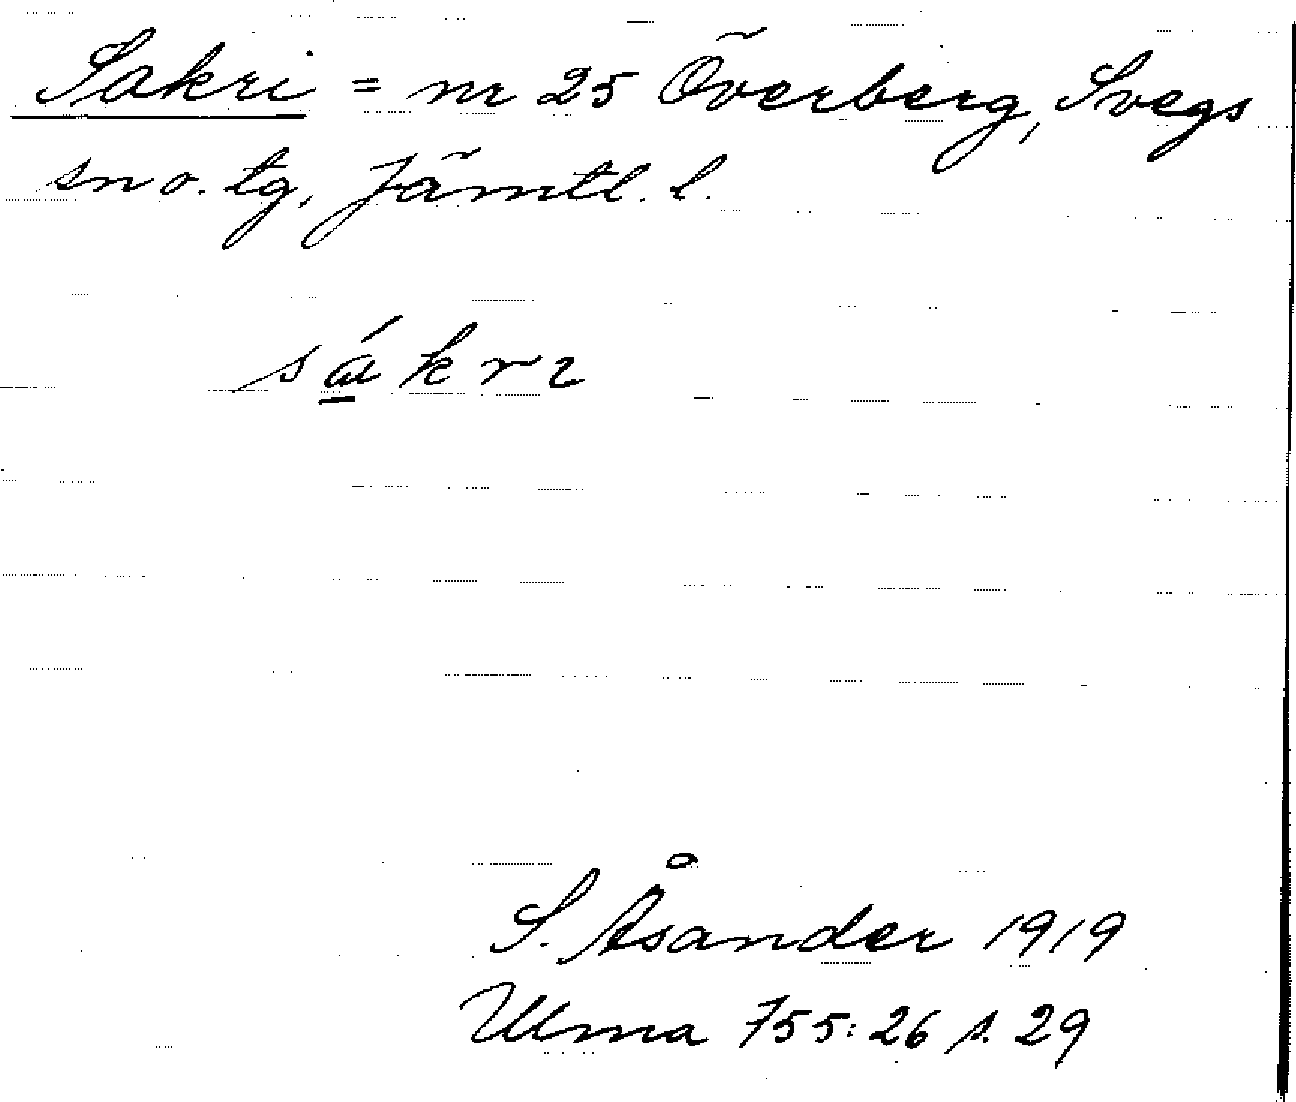 Sakri = nr 25 Överberg, Svegs
sn o. tg, Jämtl. l.
sákrı
S. Åsander 1919
Ulma 755:26 s. 29